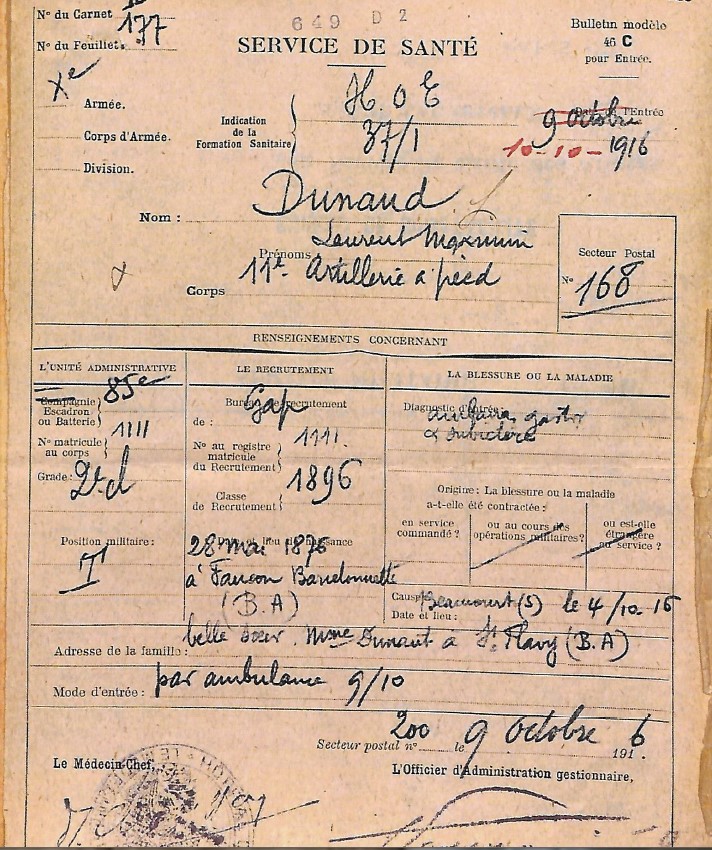 649 D 2
N° du Carnet
N° du Feuillet. 177
SERVICE DE SANTÉ
Bulletin modèle
46 C
pour Entrée.
Xe Armée.
Corps d'Armée.
Division.
Indication
de la
Formation Sanitaire
H.O E
37/1
Date de l'Entrée
9 octobre
10-10-1916
Nom : Dunaud
Prénoms Laurent Maximin
Corps 11e Artillerie à pied
Secteur Postal
N° 168
RENSEIGNEMENTS CONCERNANT
L'UNITÉ ADMINISTRATIVE
85e
Compagnie
Escadron
ou Batterie
N° matricule
au corps 1111
Grade: 2e cl
Position militaire:
T
LE RECRUTEMENT
Bureau de recrutement
de : Gap
N° au registre
matricule
du Recrutement 1111.
Classe
de Recrutement 1896
Date et lieu de naissance
28 mai 1876
à Faucon Barcelonnette
(B.A)
LA BLESSURE OU LA MALADIE
Diagnostic d'entrée:
embarras gastr
Origine: La blessure ou la maladie
a-t-elle été contractée:
en service
commandé ?
ou au cours des
opérations militaires?
ou est-elle
étrangère
au service ?
Cause
Date et lieu: Beaucourt (S) le 4/10-16
Adresse de la famille: belle sœur. Mme Dunaut à St Flavy (B.A)
Mode d'entrée: par ambulance 9/10
Secteur postal n° 200 le 9 octobre 1916
Le Médecin-Chef,
L'Officier d'Administration gestionnaire,